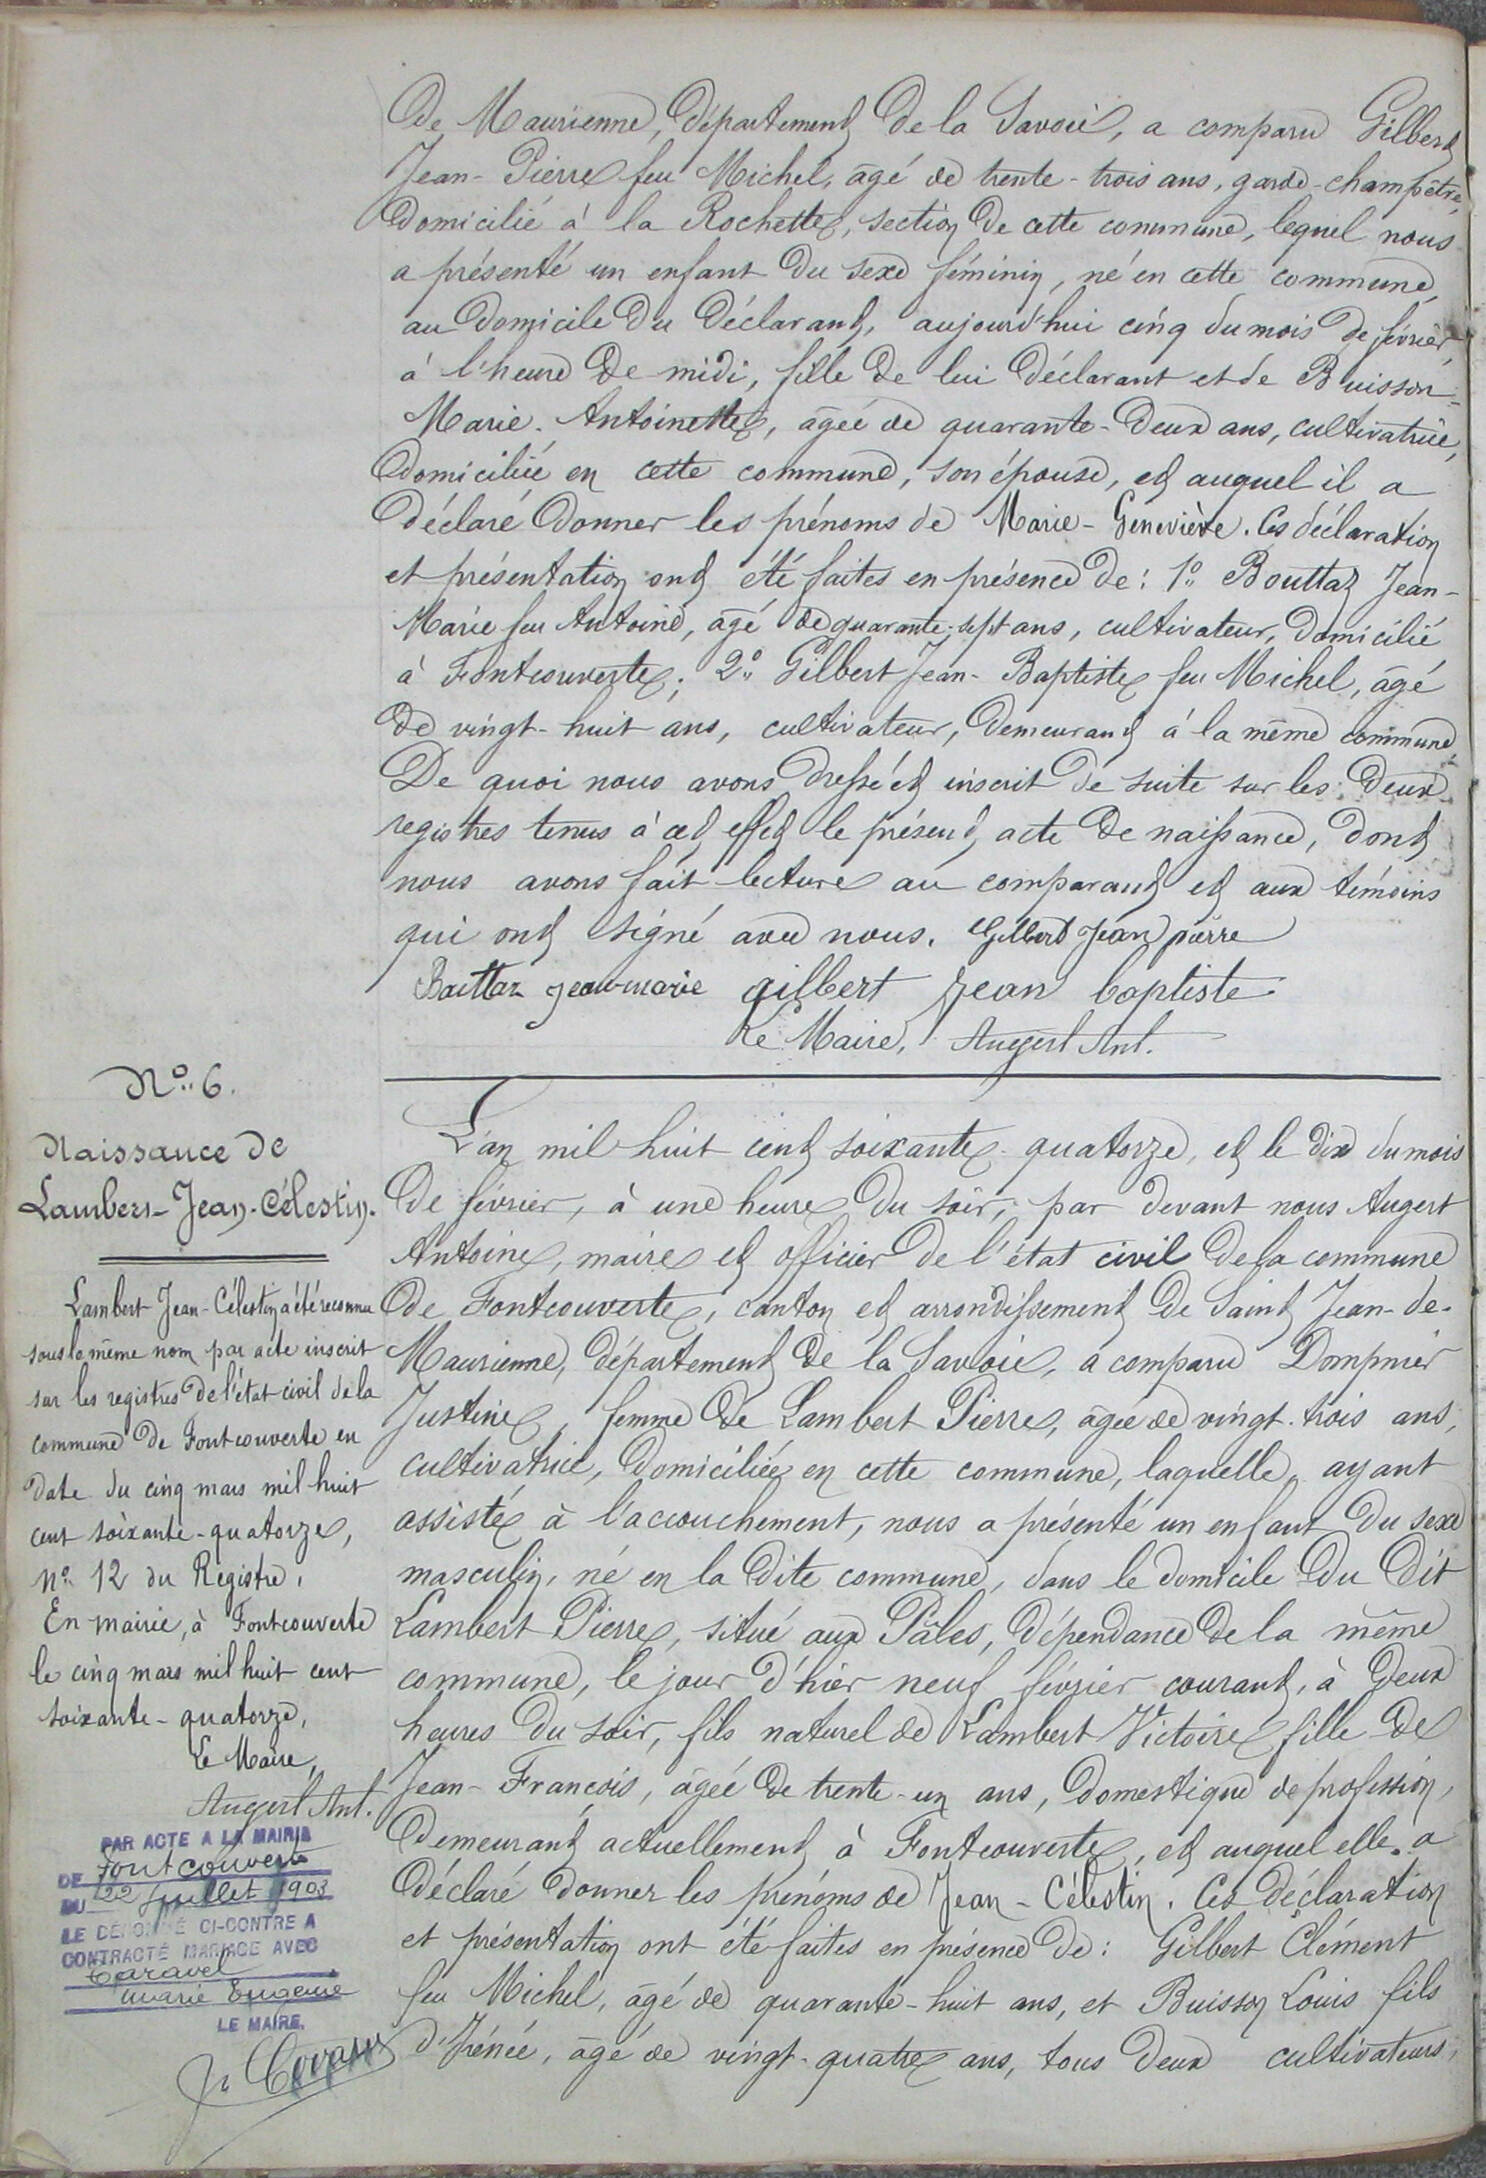 de Maurienne, département de la Savoie, a comparu Gilbert
Jean-Pierre feu Michel, âgé de trente-trois ans, garde-champêtre,
domicilié à la Rochette, section de cette commune, lequel nous
a présenté un enfant du sexe féminin, né en cette commune,
au domicile du déclarant, aujourd'hui cinq du mois de février,
à l'heure de midi, fille de lui déclarant et de Buisson
Marie-Antoinette, âgée de quarante-deux ans, cultivatrice,
domiciliée en cette commune, son épouse, et auquel il a
déclaré donner les prénoms de Marie-Geneviève. Ces déclaration
et présentation ont été faites en présence de: 1° Bouttaz Jean-
Marie feu Antoine, âgé de quarante-sept ans, cultivateur, domicilié
à Fontcouverte; 2° Gilbert Jean-Baptiste feu Michel, âgé
de vingt-huit ans, cultivateur, demeurant à la même commune.
De quoi nous avons dressé et inscrit de suite sur les deux
registres tenus à cet effet le présent acte de naissance, dont
nous avons fait lecture au comparant et aux témoins
qui ont signé avec nous. Gilbert Jean pierre
Bouttaz jean-marie gilbert jean baptiste
Le Maire, Augert Ant.
N° 6.
Naissance de
Lambert-Jean-Célestin.
Lambert Jean-Célestin a été reconnu
sous le même nom par acte inscrit
sur les registres de l'état civil de la
commune de Fontcouverte en
date du cinq mars mil huit
cent soixante-quatorze,
N° 12 du Registre.
En mairie, à Fontcouverte
le cinq mars mil huit cent
soixante-quatorze.
Le Maire,
Augert Ant.
PAR ACTE A LA MAIRIE
DE Fontcouverte
DU 22 Juillet 1903
LE DÉNOMMÉ CI-CONTRE A
CONTRACTÉ MARIAGE AVEC
Caravel
Marie Eugenie
LE MAIRE.
L'an mil huit cent soixante-quatorze, et le dix du mois
de février, à une heure du soir, par devant nous Augert
Antoine, maire et officier de l'état civil de la commune
de Fontcouverte, canton et arrondissement de Saint Jean-de-
Maurienne, département de la Savoie, a comparu Dompnier
Justine, femme de Lambert Pierre, âgée de vingt-trois ans,
cultivatrice, domiciliée en cette commune, laquelle, ayant
assisté à l'accouchement, nous a présenté un enfant du sexe
masculin, né en la dite commune, dans le domicile du dit
Lambert Pierre, situé aux Pâles, dépendance de la même
commune, le jour d'hier neuf février courant, à deux
heures du soir, fils naturel de Lambert Victoire fille de
Jean-François, âgée de trente-un ans, domestique de profession,
demeurant actuellement à Fontcouverte, et auquel elle a
déclaré donner les prénoms de Jean-Célestin. Ces déclaration
et présentation ont été faites en présence de: Gilbert Clément
feu Michel, âgé de quarante-huit ans, et Buisson Louis fils
d'Irénée, âgé de vingt-quatre ans, tous deux cultivateurs,